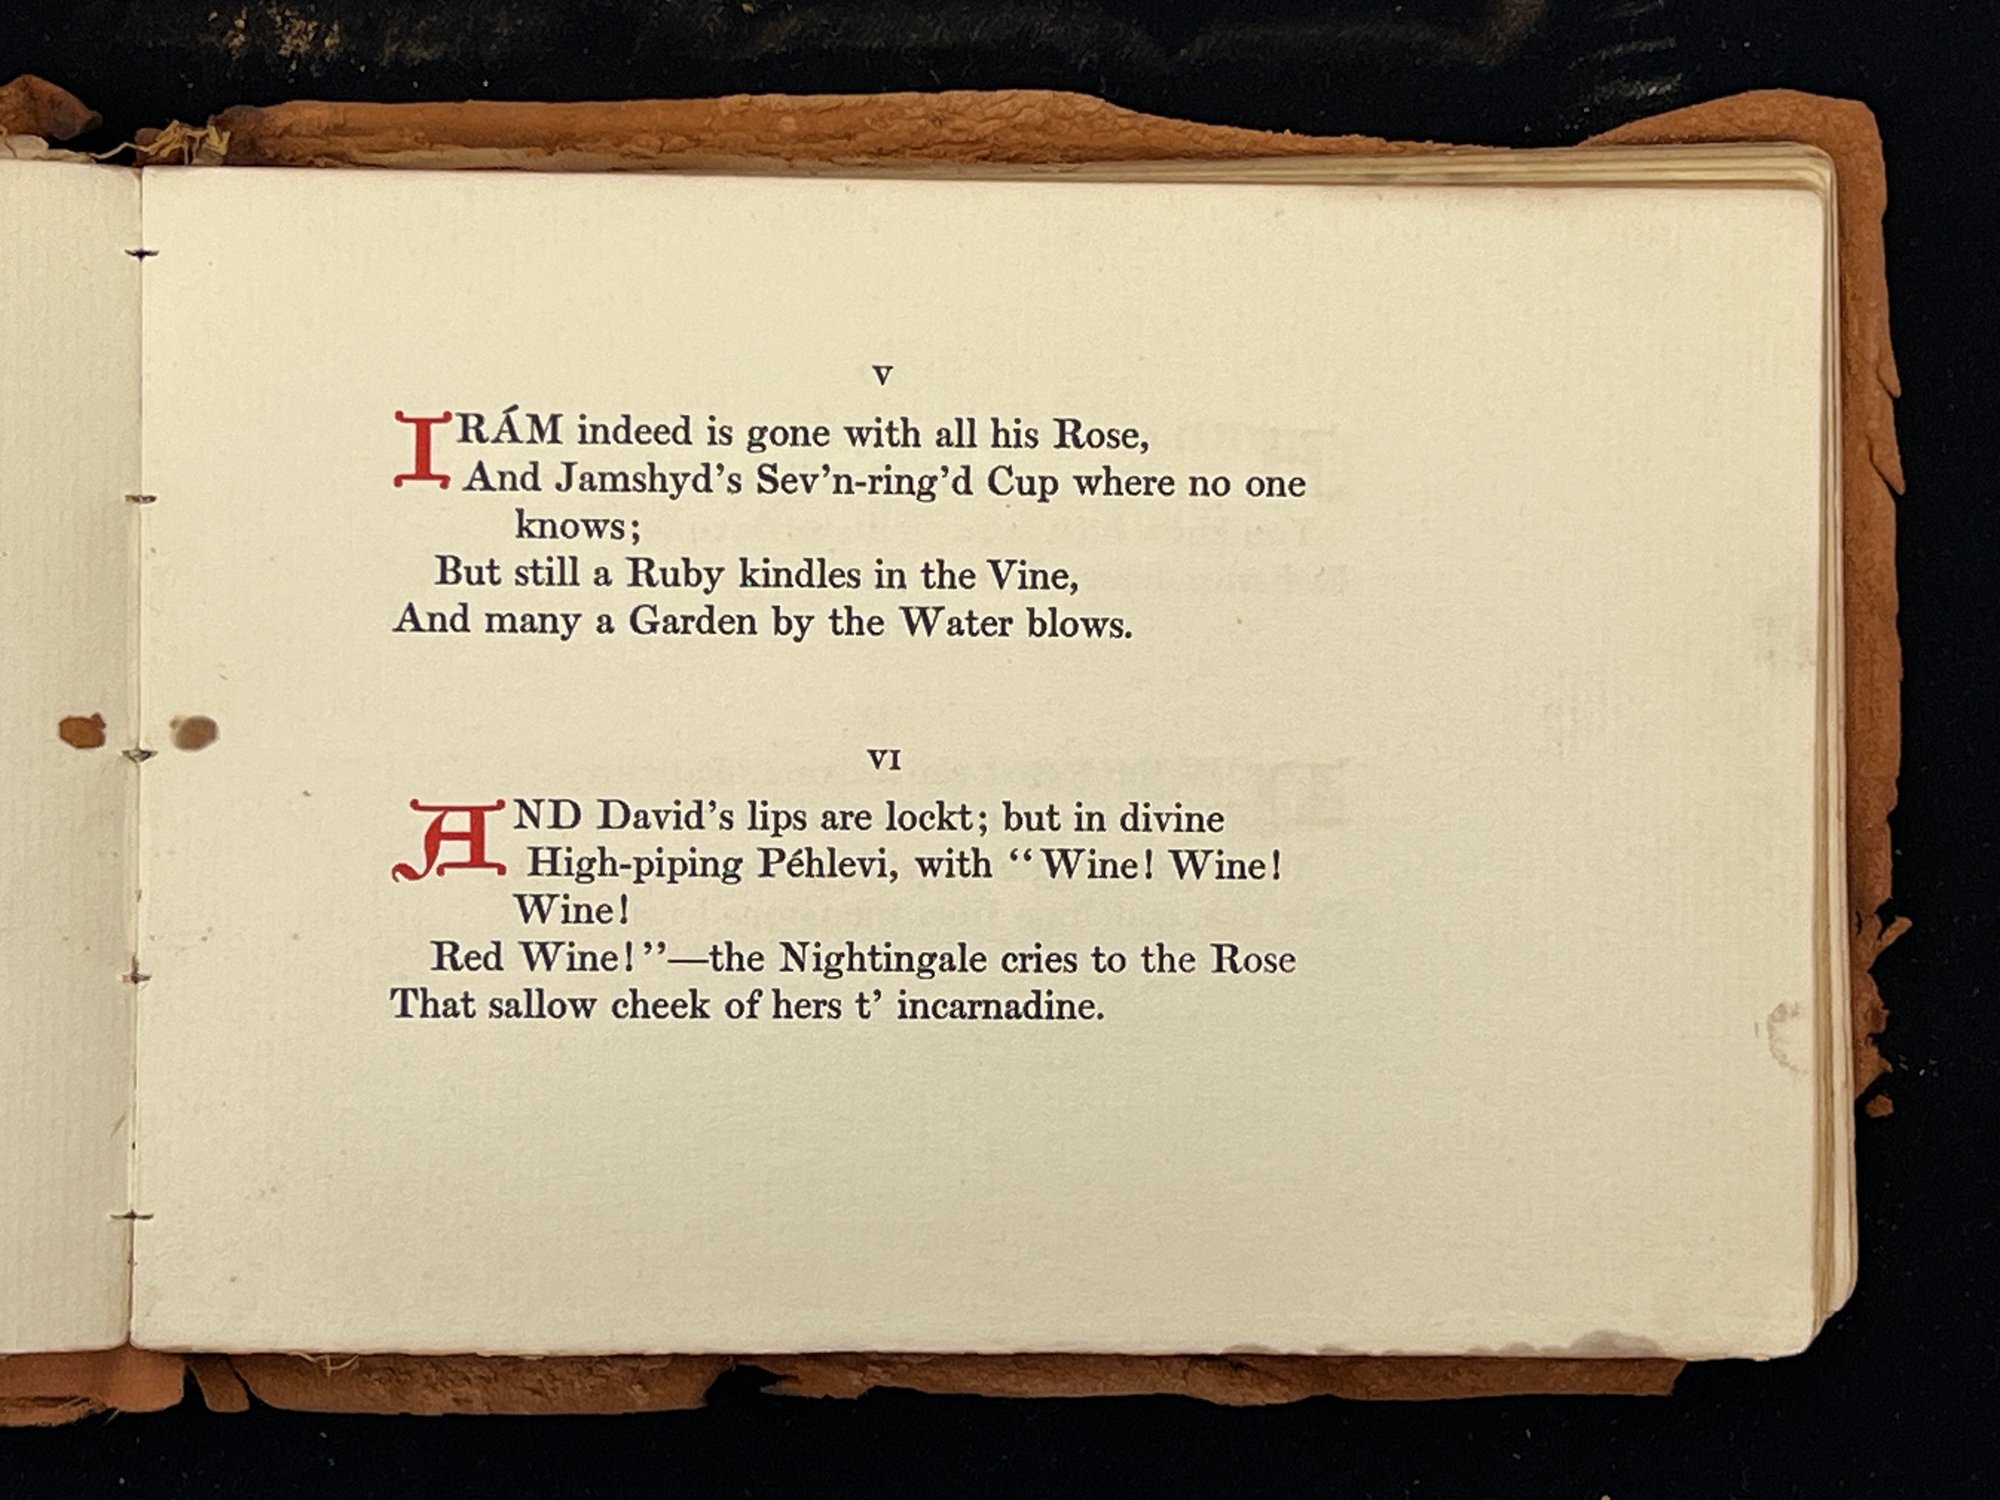 V
IRÁM indeed is gone with all his Rose,
And Jamshyd’s Sev’n-ring’d Cup where no one
knows;
But still a Ruby kindles in the Vine,
And many a Garden by the Water blows.
VI
AND David’s lips are lockt; but in divine
High-piping Péhlevi, with “Wine! Wine!
Wine!
Red Wine!”—the Nightingale cries to the Rose
That sallow cheek of hers t’ incarnadine.